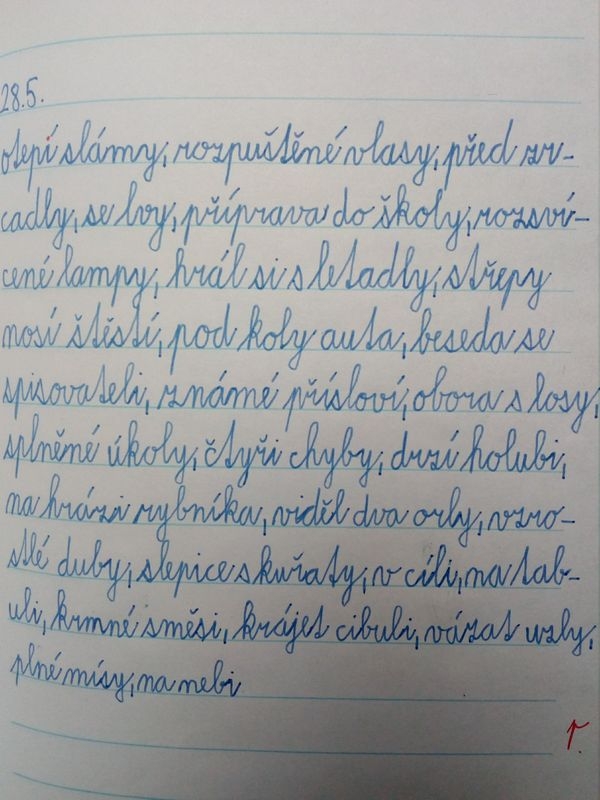 28.5.
otepí slámy, rozpuštěné vlasy, před zr-
cadly, se lvy, příprava do školy, rozsví-
cené lampy, hrál si s letadly, střepy
nosí štěstí, pod koly auta, beseda se
spisovateli, známé přísloví, obora s losy,
splněmé úkoly, čtyři chyby, drzí holubi,
na hrázi rybníka, viděl dva orly, vzro-
stlé duby, slepice s kuřaty, v cíli, na tab-
uli, krmné směsi, krájet cibuli, vázat uzly,
plné mísy, na nebi
1.